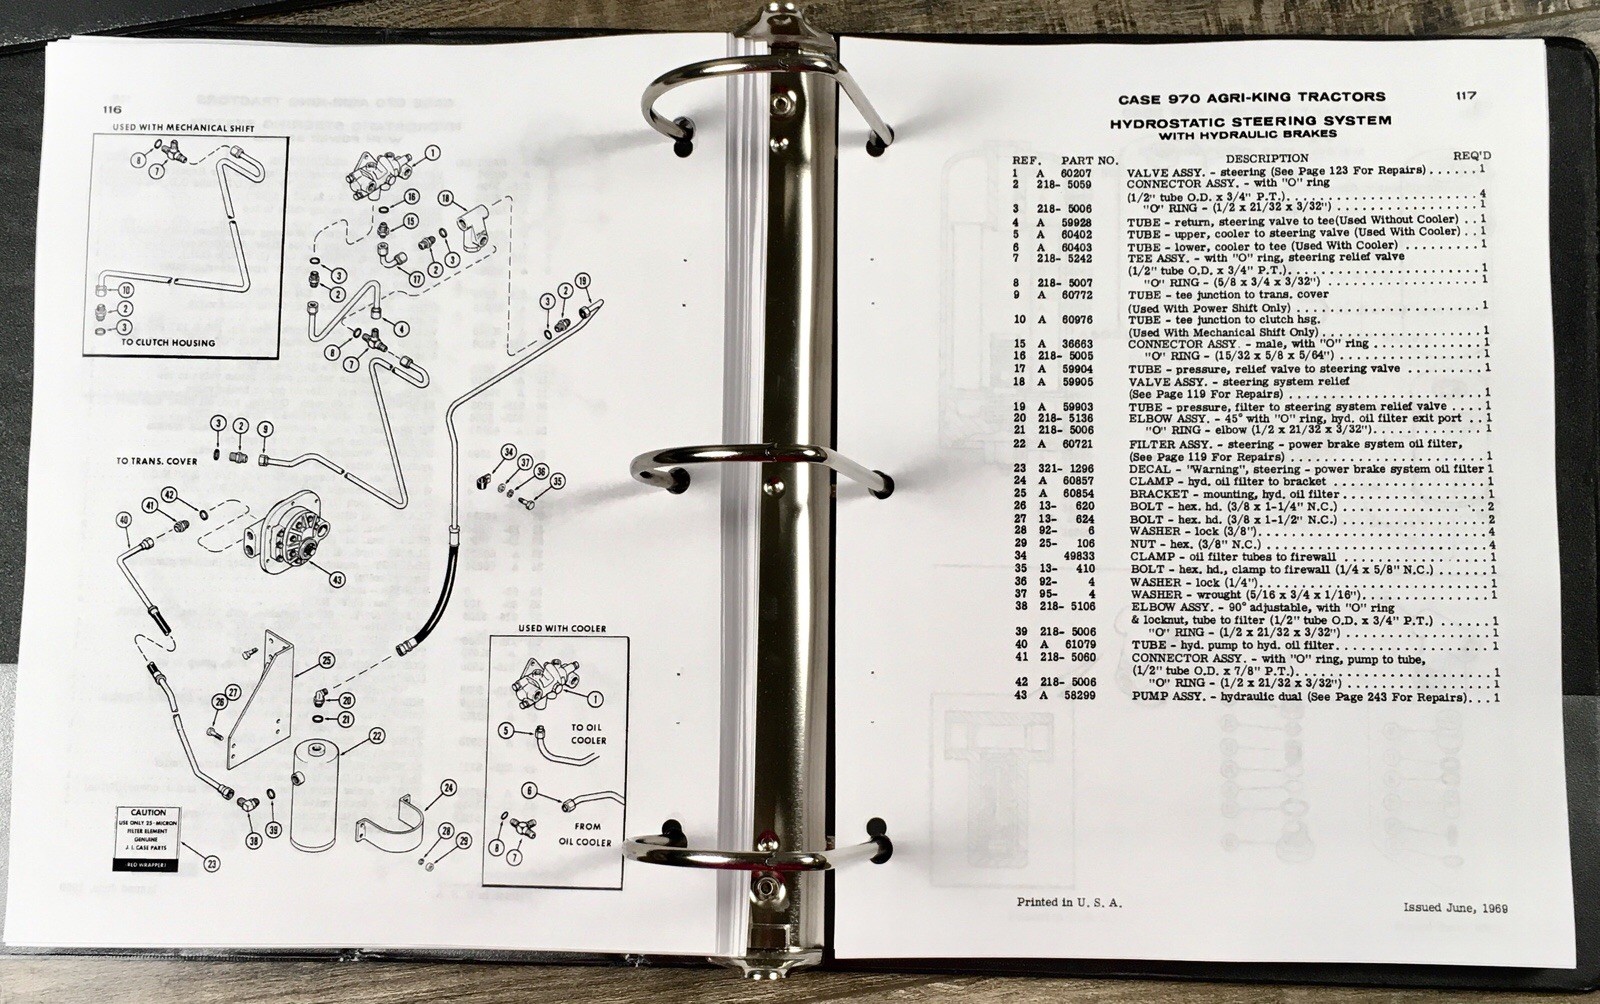 116
USED WITH MECHANICAL SHIFT
8
7
10
2
3
TO CLUTCH HOUSING
1
16
15
18
3
2
17
3
2
4
8
7
3
2
19
3
2
9
TO TRANS. COVER
34
37
36
35
42
41
40
43
25
27
26
20
21
22
24
28
29
38
39
23
CAUTION
USE ONLY 25-MICRON
FILTER ELEMENT
GENUINE
J. I. CASE PARTS
RED WRAPPER
USED WITH COOLER
1
5
TO OIL
COOLER
6
FROM
OIL COOLER
8
7
CASE 970 AGRI-KING TRACTORS 117
HYDROSTATIC STEERING SYSTEM
WITH HYDRAULIC BRAKES
REF. PART NO. DESCRIPTION REQ'D
1 A 60207 VALVE ASSY. - steering (See Page 123 For Repairs) . . . . . . 1
2 218- 5059 CONNECTOR ASSY. - with "O" ring
(1/2" tube O.D. x 3/4" P.T.). . . . . . . . . . . . . . . . . . . . 4
3 218- 5006 "O" RING - (1/2 x 21/32 x 3/32") . . . . . . . . . . . . . . . . 1
4 A 59928 TUBE - return, steering valve to tee(Used Without Cooler) . . 1
5 A 60402 TUBE - upper, cooler to steering valve (Used With Cooler) . . 1
6 A 60403 TUBE - lower, cooler to tee (Used With Cooler) . . . . . . . . . 1
7 218- 5242 TEE ASSY. - with "O" ring, steering relief valve
(1/2" tube O.D. x 3/4" P.T.). . . . . . . . . . . . . . . . . . . . 1
8 218- 5007 "O" RING - (5/8 x 3/4 x 3/32") . . . . . . . . . . . . . . . . . 1
9 A 60772 TUBE - tee junction to trans. cover
(Used With Power Shift Only) . . . . . . . . . . . . . . . . . . . 1
10 A 60976 TUBE - tee junction to clutch hsg.
(Used With Mechanical Shift Only) . . . . . . . . . . . . . . . . 1
15 A 36663 CONNECTOR ASSY. - male, with "O" ring . . . . . . . . . . . 1
16 218- 5005 "O" RING - (15/32 x 5/8 x 5/64") . . . . . . . . . . . . . . . . 1
17 A 59904 TUBE - pressure, relief valve to steering valve . . . . . . . . . 1
18 A 59905 VALVE ASSY. - steering system relief
(See Page 119 For Repairs) . . . . . . . . . . . . . . . . . . . . 1
19 A 59903 TUBE - pressure, filter to steering system relief valve . . . . 1
20 218- 5136 ELBOW ASSY. - 45° with "O" ring, hyd. oil filter exit port . . 1
21 218- 5006 "O" RING - elbow (1/2 x 21/32 x 3/32"). . . . . . . . . . . . . 1
22 A 60721 FILTER ASSY. - steering - power brake system oil filter,
(See Page 119 For Repairs) . . . . . . . . . . . . . . . . . . . . 1
23 321- 1296 DECAL - "Warning", steering - power brake system oil filter 1
24 A 60857 CLAMP - hyd. oil filter to bracket . . . . . . . . . . . . . . . . . 1
25 A 60854 BRACKET - mounting, hyd. oil filter . . . . . . . . . . . . . . . . 1
26 13- 620 BOLT - hex. hd. (3/8 x 1-1/4" N.C.) . . . . . . . . . . . . . . . 2
27 13- 624 BOLT - hex. hd. (3/8 x 1-1/2" N.C.) . . . . . . . . . . . . . . . 2
28 92- 6 WASHER - lock (3/8"). . . . . . . . . . . . . . . . . . . . . . . . . 4
29 25- 106 NUT - hex. (3/8" N.C.) . . . . . . . . . . . . . . . . . . . . . . . . 4
34 49833 CLAMP - oil filter tubes to firewall . . . . . . . . . . . . . . . . 1
35 13- 410 BOLT - hex. hd., clamp to firewall (1/4 x 5/8" N.C.) . . . . . . 1
36 92- 4 WASHER - lock (1/4"). . . . . . . . . . . . . . . . . . . . . . . . . 1
37 95- 4 WASHER - wrought (5/16 x 3/4 x 1/16"). . . . . . . . . . . . . . 1
38 218- 5106 ELBOW ASSY. - 90° adjustable, with "O" ring
& locknut, tube to filter (1/2" tube O.D. x 3/4" P.T.) . . . . . . 1
39 218- 5006 "O" RING - (1/2 x 21/32 x 3/32") . . . . . . . . . . . . . . . . 1
40 A 61079 TUBE - hyd. pump to hyd. oil filter. . . . . . . . . . . . . . . . . 1
41 218- 5060 CONNECTOR ASSY. - with "O" ring, pump to tube,
(1/2" tube O.D. x 7/8" P.T.). . . . . . . . . . . . . . . . . . . . 1
42 218- 5006 "O" RING - (1/2 x 21/32 x 3/32") . . . . . . . . . . . . . . . . 1
43 A 58299 PUMP ASSY. - hydraulic dual (See Page 243 For Repairs). . . 1
Printed in U. S. A.
Issued June, 1969